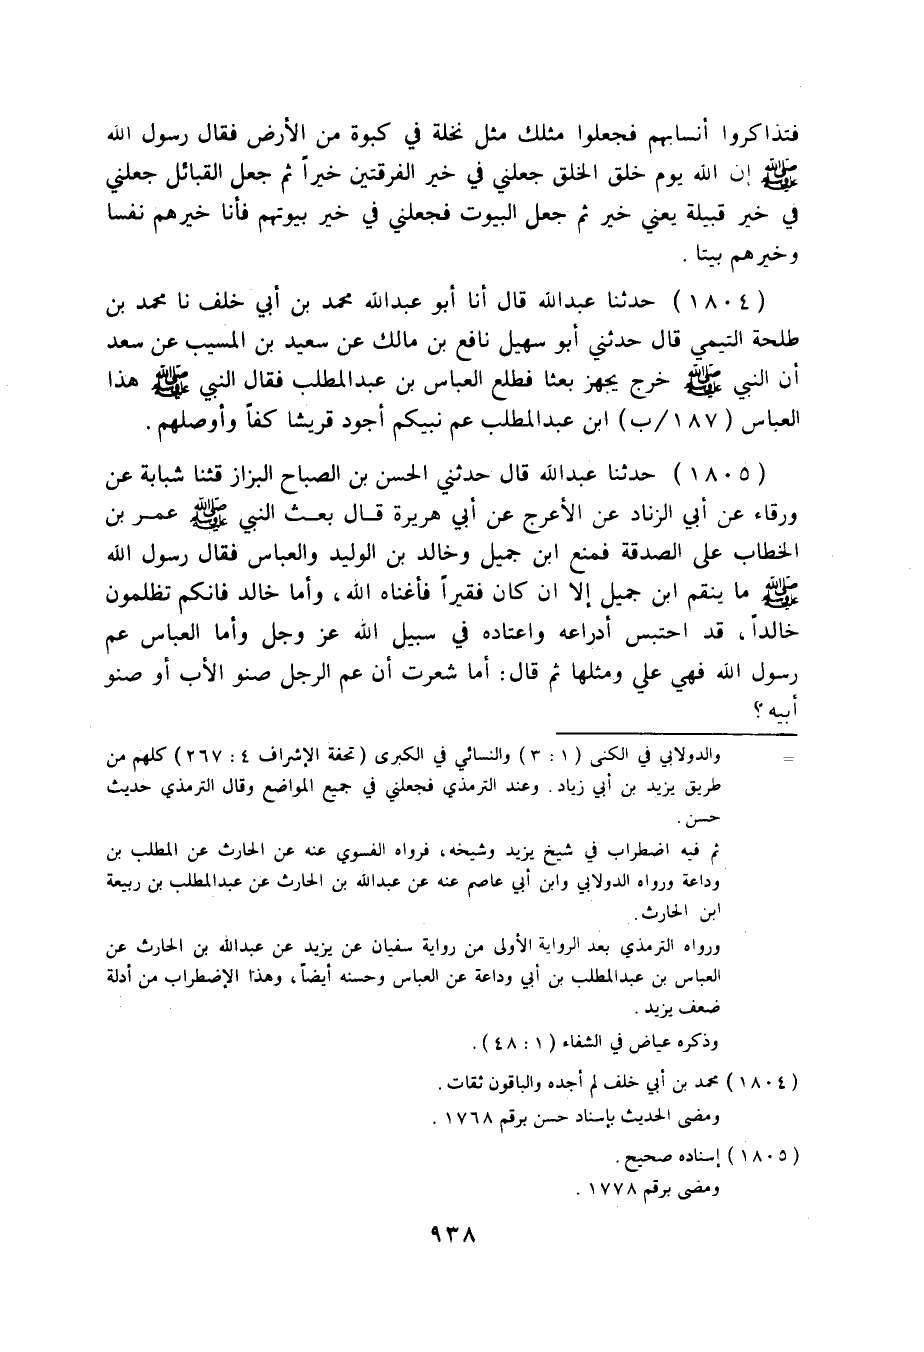 فتذاكروا أنسابهم فجعلوا مثلك مثل نخلة في كبوة من الأرض فقال رسول الله
ﷺ إن الله يوم خلق الخلق جعلني في خير الفرقتين خيراً ثم جعل القبائل جعلني
في خير قبيلة يعني خير ثم جعل البيوت فجعلني في خير بيوتهم فأنا خيرهم نفسا
وخيرهم بيتا .
( ١٨٠٤ ) حدثنا عبدالله قال أنا أبو عبدالله محمد بن أبي خلف نا محمد بن
طلحة التيمي قال حدثني أبو سهيل نافع بن مالك عن سعيد بن المسيب عن سعد
أن النبي ﷺ خرج يجهز بعثا فطلع العباس بن عبدالمطلب فقال النبي ﷺ هذا
العباس ( ١٨٧/ب ) ابن عبدالمطلب عم نبيكم أجود قريشا كفاً وأوصلهم .
( ١٨٠٥ ) حدثنا عبدالله قال حدثني الحسن بن الصباح البزاز قثنا شبابة عن
ورقاء عن أبي الزناد عن الأعرج عن أبي هريرة قال بعث النبي ﷺ عمر بن
الخطاب على الصدقة فمنع ابن جميل وخالد بن الوليد والعباس فقال رسول الله
ﷺ ما ينقم ابن جميل إلا ان كان فقيراً فأغناه الله ، وأما خالد فانكم تظلمون
خالداً ، قد احتبس أدراعه واعتاده في سبيل الله عز وجل وأما العباس عم
رسول الله فهي علي ومثلها ثم قال : أما شعرت أن عم الرجل صنو الأب أو صنو
أبيه ؟
= والدولابي في الكنى ( ١ : ٣ ) والنسائي في الكبرى ( تحفة الإشراف ٤ : ٢٦٧ ) كلهم من
طريق يزيد بن أبي زياد . وعند الترمذي فجعلني في جميع المواضع وقال الترمذي حديث
حسن .
ثم فيه اضطراب في شيخ يزيد وشيخه ، فرواه الفسوي عنه عن الحارث عن المطلب بن
وداعة ورواه الدولابي وابن أبي عاصم عنه عن عبدالله بن الحارث عن عبدالمطلب بن ربيعة
ابن الحارث .
ورواه الترمذي بعد الرواية الأولى من رواية سفيان عن يزيد عن عبدالله بن الحارث عن
العباس بن عبدالمطلب بن أبي وداعة عن العباس وحسنه أيضاً ، وهذا الإضطراب من أدلة
ضعف يزيد .
وذكره عياض في الشفاء ( ١ : ٤٨ ) .
( ١٨٠٤ ) محمد بن أبي خلف لم أجده والباقون ثقات .
ومضى الحديث بإسناد حسن برقم ١٧٦٨ .
( ١٨٠٥ ) إسناده صحيح .
ومضى برقم ١٧٧٨ .
٩٣٨